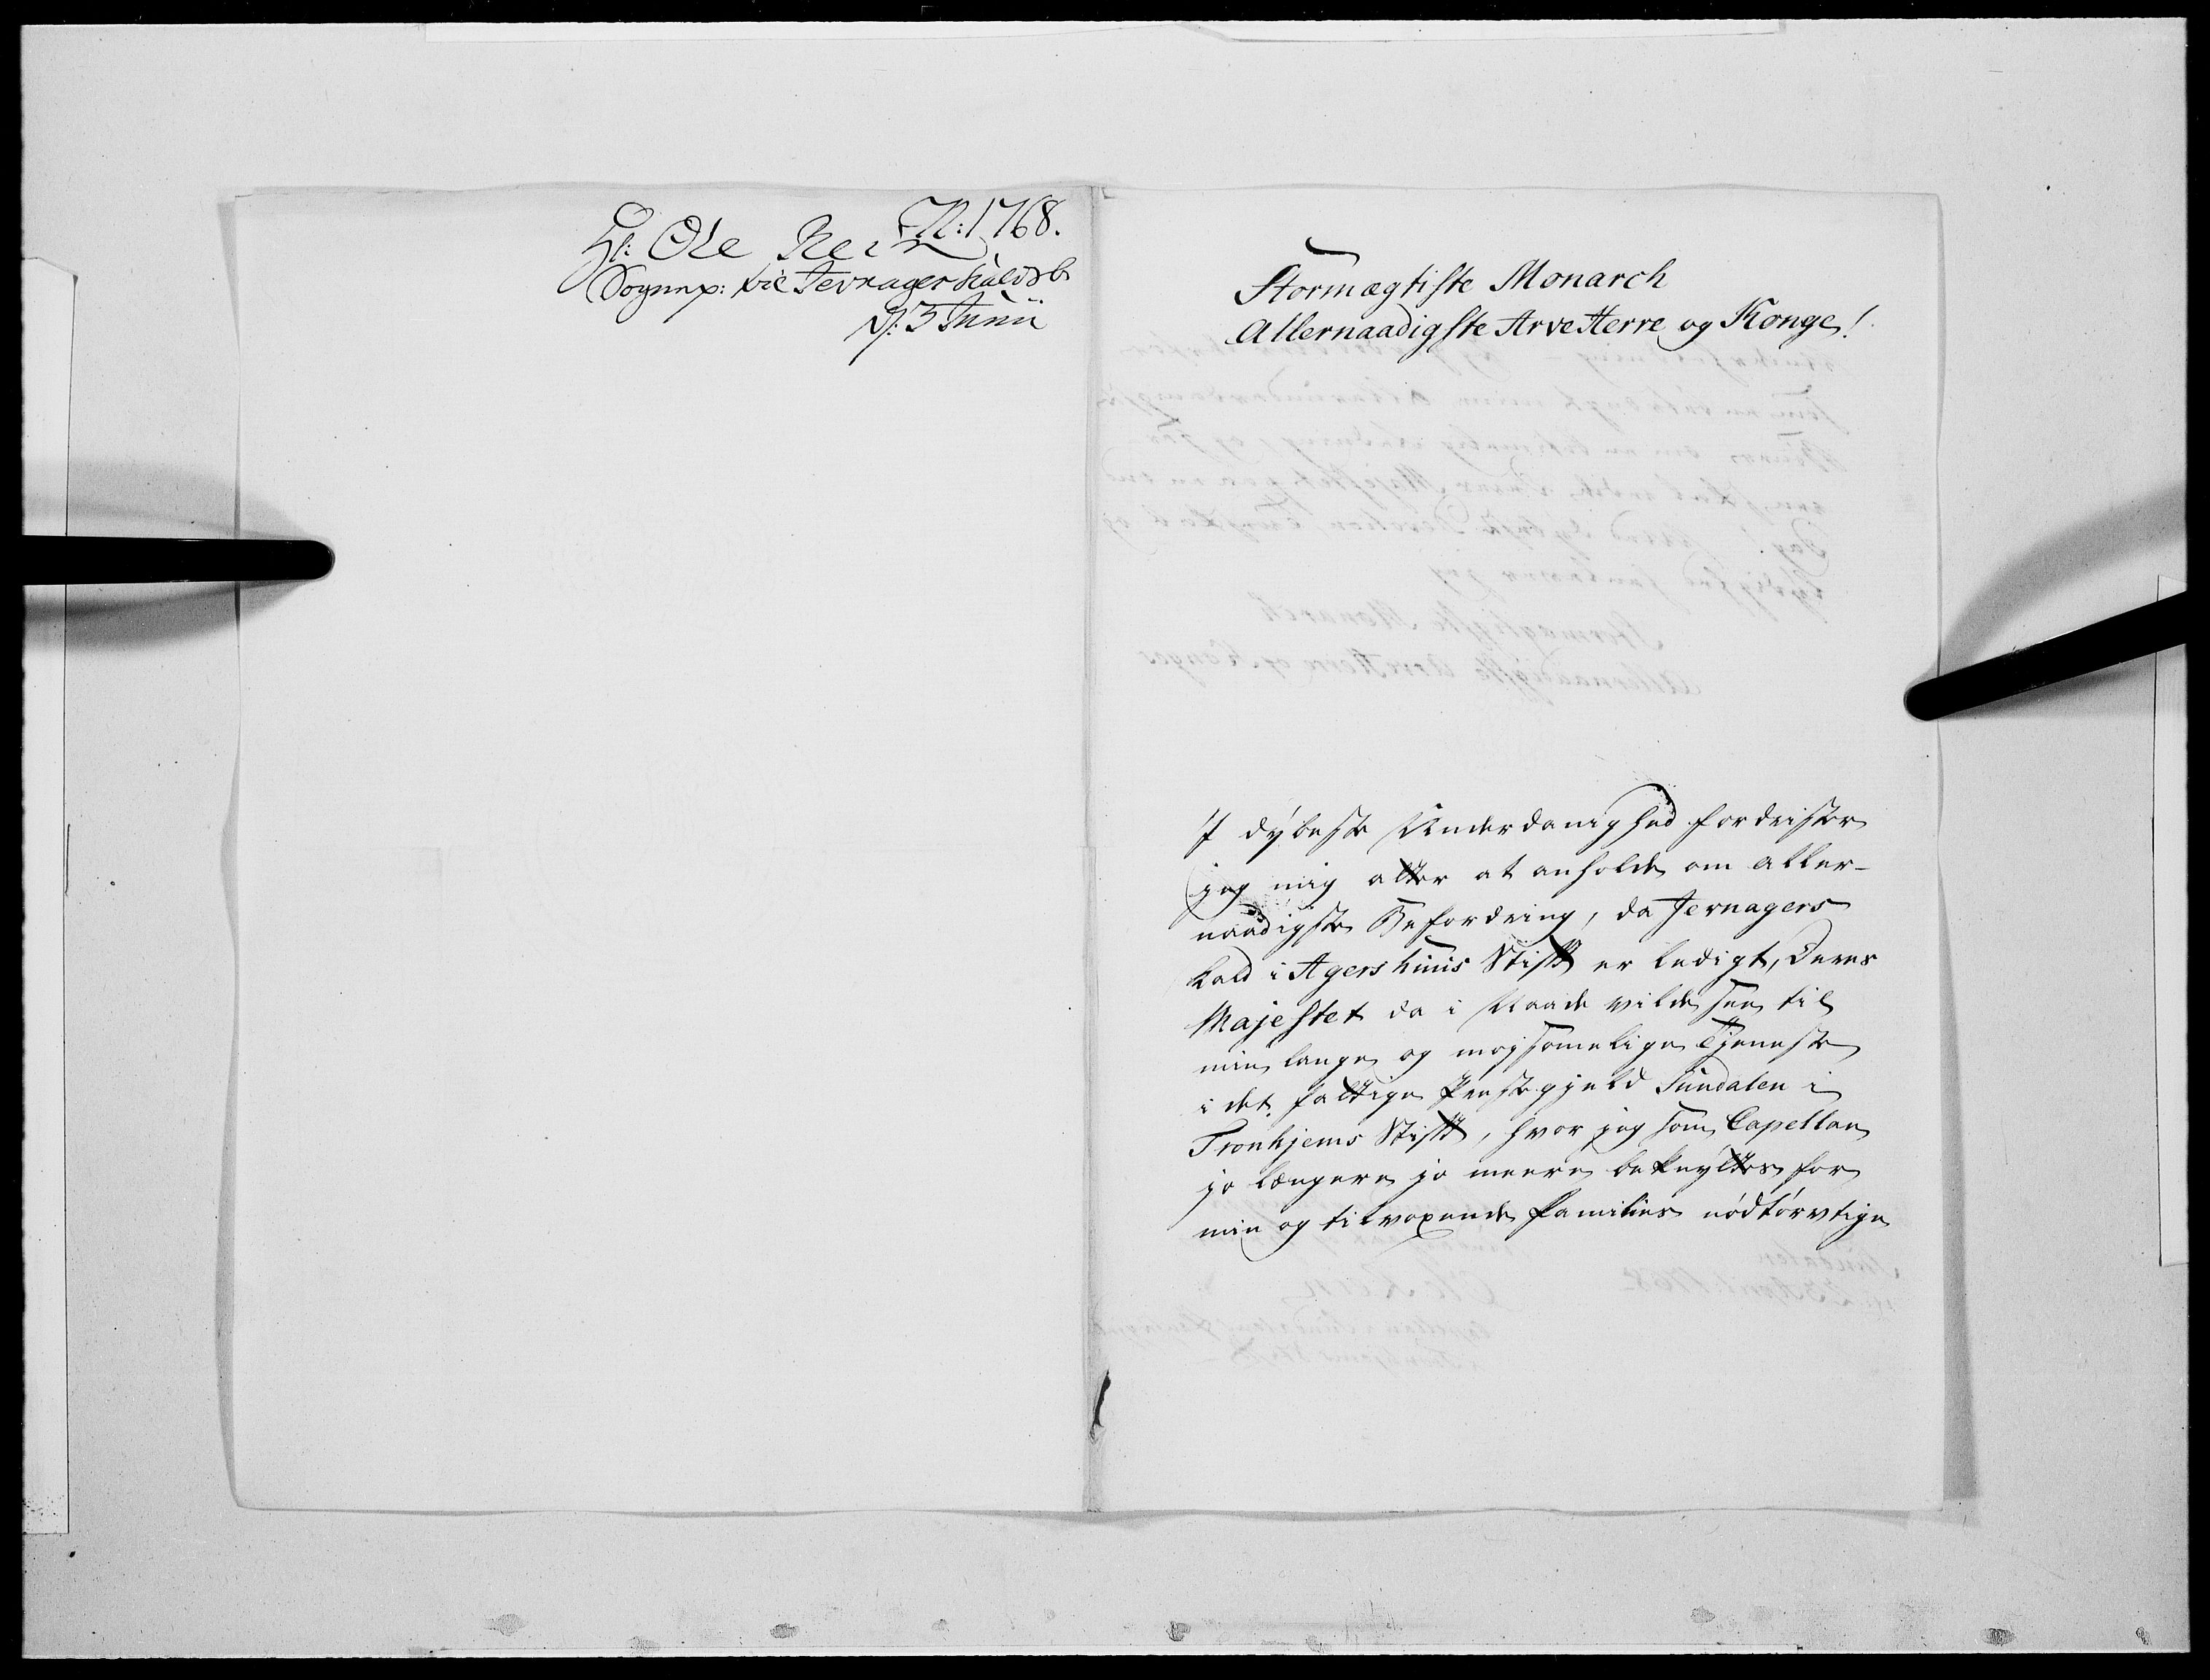 N: 1768.
Hr: Ole Rein
Sognep: til Jevnager Kald
d: 3 Junii
Stormægtiste Monarch
Allernaadigste Arve Herre og Konge!
I dybeste Underdanighed fordrister
jeg mig atter at anholde om aller-
naadigste Befordring, da Jevnagers
Kald i Agershuus Stift er ledigt, Deres
Majestet da i Naade vilde see til
min lange og møjsommelige Tjeneste
i det fattige Præstegjeld Sundalen i
Tronhjems Stift, hvor jeg som Capellan
jo længere jo meere beknyttes for
min og tilvoxende Families nødtørvtige